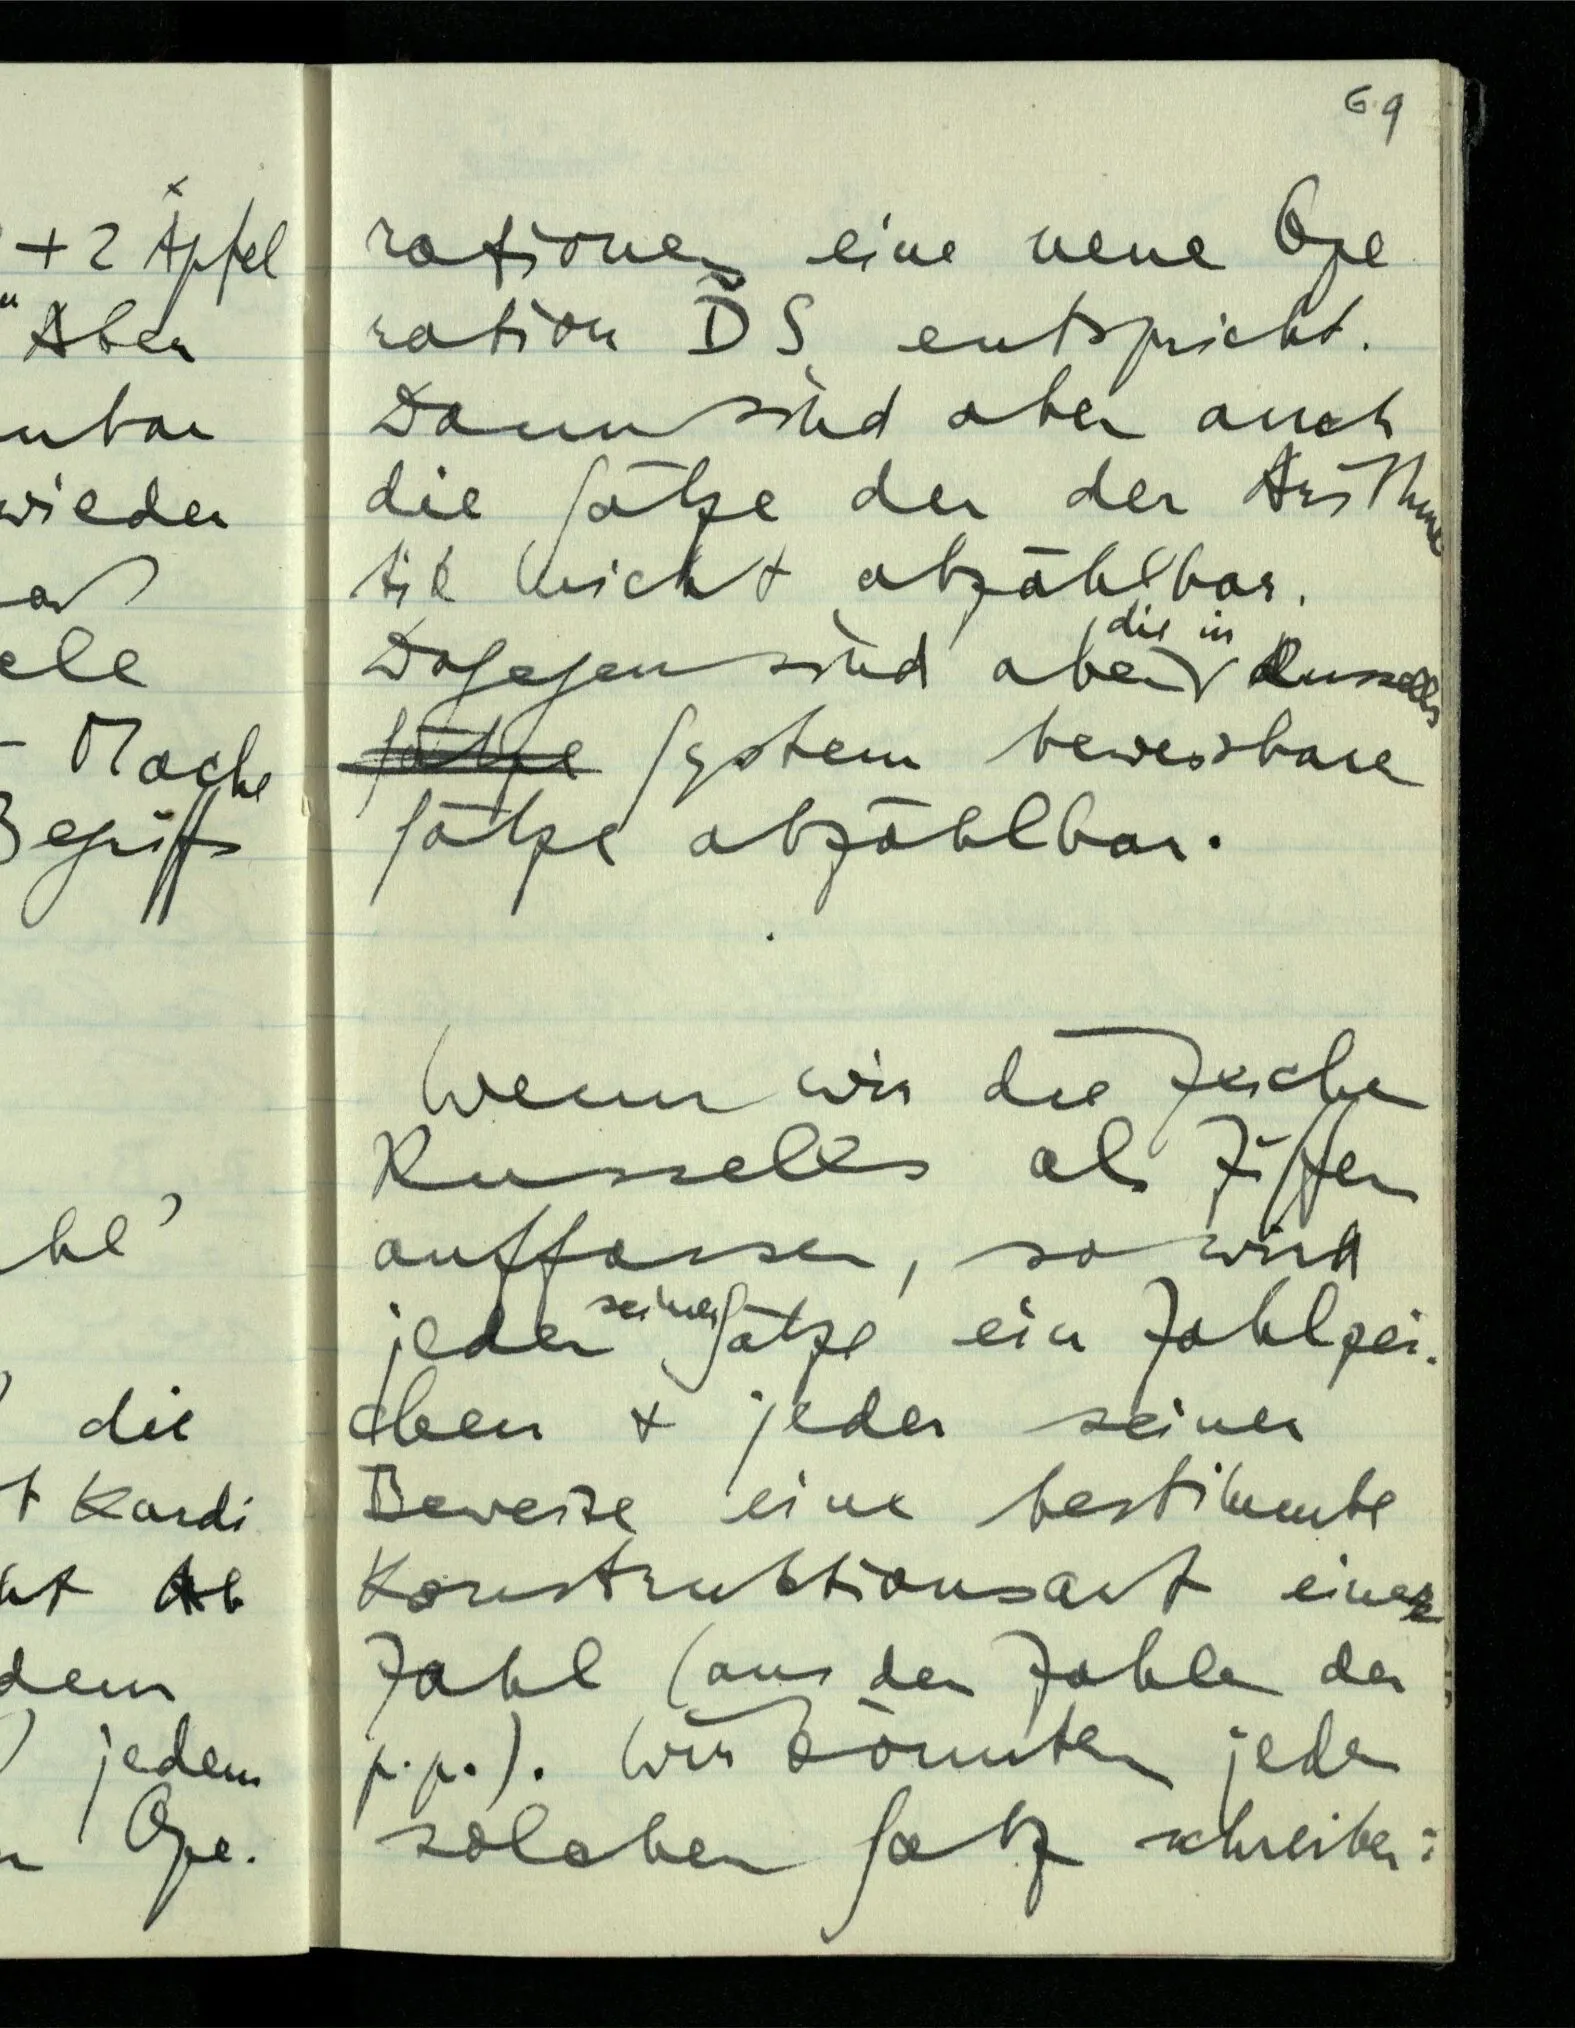 + 2 Äpfel
" Aber
nbar
wieder
ele
– Mache
Begriffs
hl'
die
t Kardi
ht Ab
dem
) jedem
n Ope.
69
rationen eine neue Ope
ration DS entspricht.
Dann sind aber auch
die Sätze der der Arithme
tik nicht abzählbar.
Dagegen sind aber die in Russells
Sätze System beweisbare
Sätze abzählbar.
Wenn wir die Zeichen
Russells als Ziffern
auffassen, so wird
jeder seiner Sätze ein Zahlzei-
chen + jeder seiner
Beweise eine bestimmte
Konstruktionsart einer
Zahl (aus den Zahlen der
p.p.). Wir könnten jeden
solchen Satz schreiben: